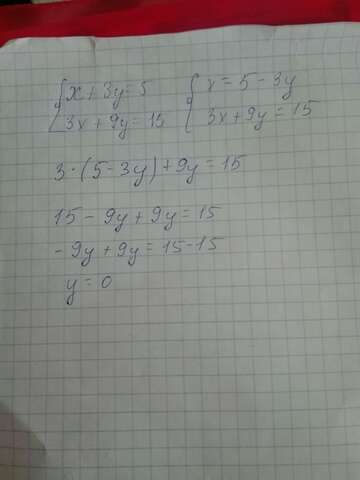 {x + 3y = 5 {x = 5 - 3y
{3x + 9y = 15 {3x + 9y = 15
3 · (5 - 3y) + 9y = 15
15 - 9y + 9y = 15
- 9y + 9y = 15 - 15
y = 0